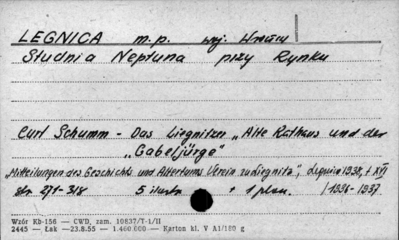 LEGNICA m.p. woj. Wrocław
Studnia Neptuna przy Rynku
Curt Schumm - Das Liegnitzer „Alte Rathaus und der
„Gabeljürge"
„Mitteilungen des Geschichts und Altertums Verein zu Liegnitz", Liegnitz 1938, t XVI
str 271-318 5 ilustr + 1 plan. /1936-1937
Wzór Kb-156 — CWD, zam. 10837/T-1/II
2445 — Łak —23.8.55 — 1.400.000 — Karton kl. V A1/180 g